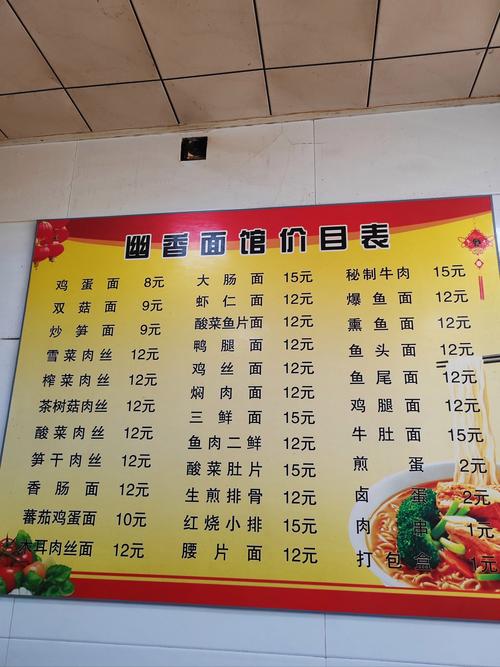 幽香面馆价目表
鸡蛋面 8元
双菇面 9元
炒笋面 9元
雪菜肉丝 12元
榨菜肉丝 12元
茶树菇肉丝 12元
酸菜肉丝 12元
笋干肉丝 12元
香肠面 12元
蕃茄鸡蛋面 10元
木耳肉丝面 12元
大肠面 15元
虾仁面 12元
酸菜鱼片面 12元
鸭腿面 12元
鸡丝面 12元
焖肉面 12元
三鲜面 15元
鱼肉二鲜 12元
酸菜肚片 15元
生煎排骨 12元
红烧小排 15元
腰片面 12元
秘制牛肉 15元
爆鱼面 12元
熏鱼面 12元
鱼头面 12元
鱼尾面 12元
鸡腿面 12元
牛肚面 15元
煎蛋 2元
卤蛋 2元
肉串 1元
打包盒 1元